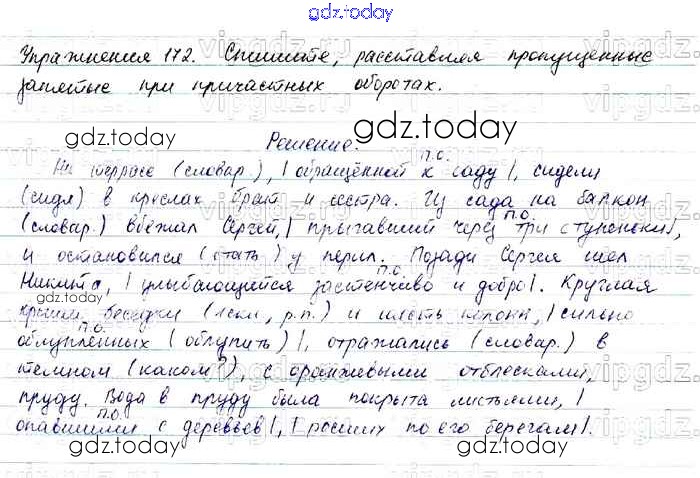 gdz.today
Упражнения 172. Спишите, расставляя пропущенные
запятые при причастных оборотах.
gdz.today
gdz.today
Решение.
п.о.
На террасе (словар.), | обращённой к саду |, сидели
(сидя) в креслах брат и сестра. Из сада на балкон
п.о.
(словар.) вбежал Сергей, | прыгавший через три ступеньки |,
и остановился (стать) у перил. Позади Сергея шел
п.о.
Никита, | улыбающийся застенчиво и добро |. Круглая
gdz.today
крыши беседки (р.п.) и шесть колонн, | сильно
п.о.
облупленных (облупить) |, отражались (словар.) в
тёмном (каком?), с оранжевыми отблесками,
пруду. Вода в пруду была покрыта листьями, |
п.о.
опавшими с деревьев |, | росших по его берегам |.
gdz.today
gdz.today
vipgdz.ru